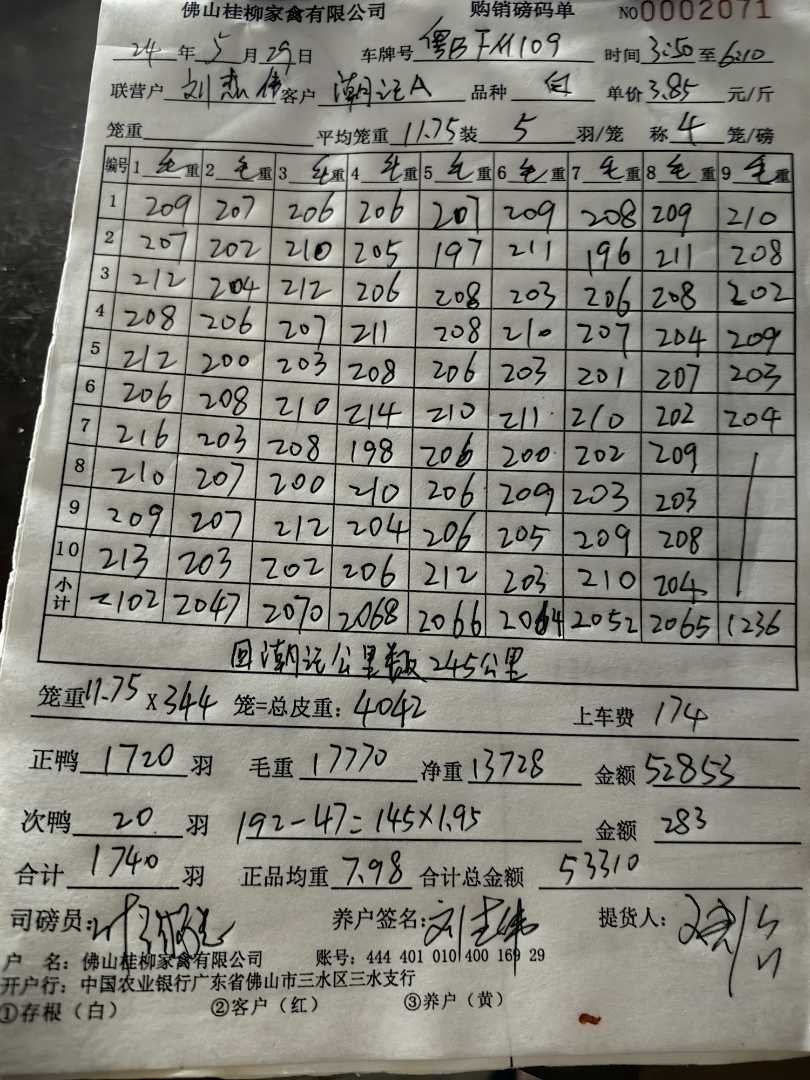 佛山桂柳家禽有限公司 购销磅码单 NO0002071
24年5月29日 车牌号 粤BFM109 时间3:50至6:10
联营户 刘杰伟 客户 潮记A 品种 白 单价3.85元/斤
笼重 平均笼重11.75装5羽/笼 称4笼/磅
编号 1毛重 2毛重 3毛重 4毛重 5毛重 6毛重 7毛重 8毛重 9毛重
1 209 207 206 206 207 209 208 209 210
2 207 202 210 205 197 211 196 211 208
3 212 204 212 206 208 203 206 208 202
4 208 206 207 211 208 210 207 204 209
5 212 200 203 208 206 203 201 207 203
6 206 208 210 214 210 211 210 202 204
7 216 203 208 198 206 200 202 209
8 210 207 200 210 206 209 203 203
9 209 207 212 204 206 205 209 208
10 213 203 202 206 212 203 210 204
小计 2102 2047 2070 2068 2066 2064 2052 2065 1236
回潮记公里数245公里
笼重11.75x344笼=总皮重:4042 上车费174
正鸭1720羽 毛重17770净重13728 金额52853
次鸭20羽 192-47=145×1.95 金额283
合计1740羽 正品均重7.98合计总金额53310
司磅员: 养户签名: 提货人:
户 名:佛山桂柳家禽有限公司 账号:444 401 010 400 169 29
开户行:中国农业银行广东省佛山市三水区三水支行
①存根(白) ②客户(红) ③养户(黄)